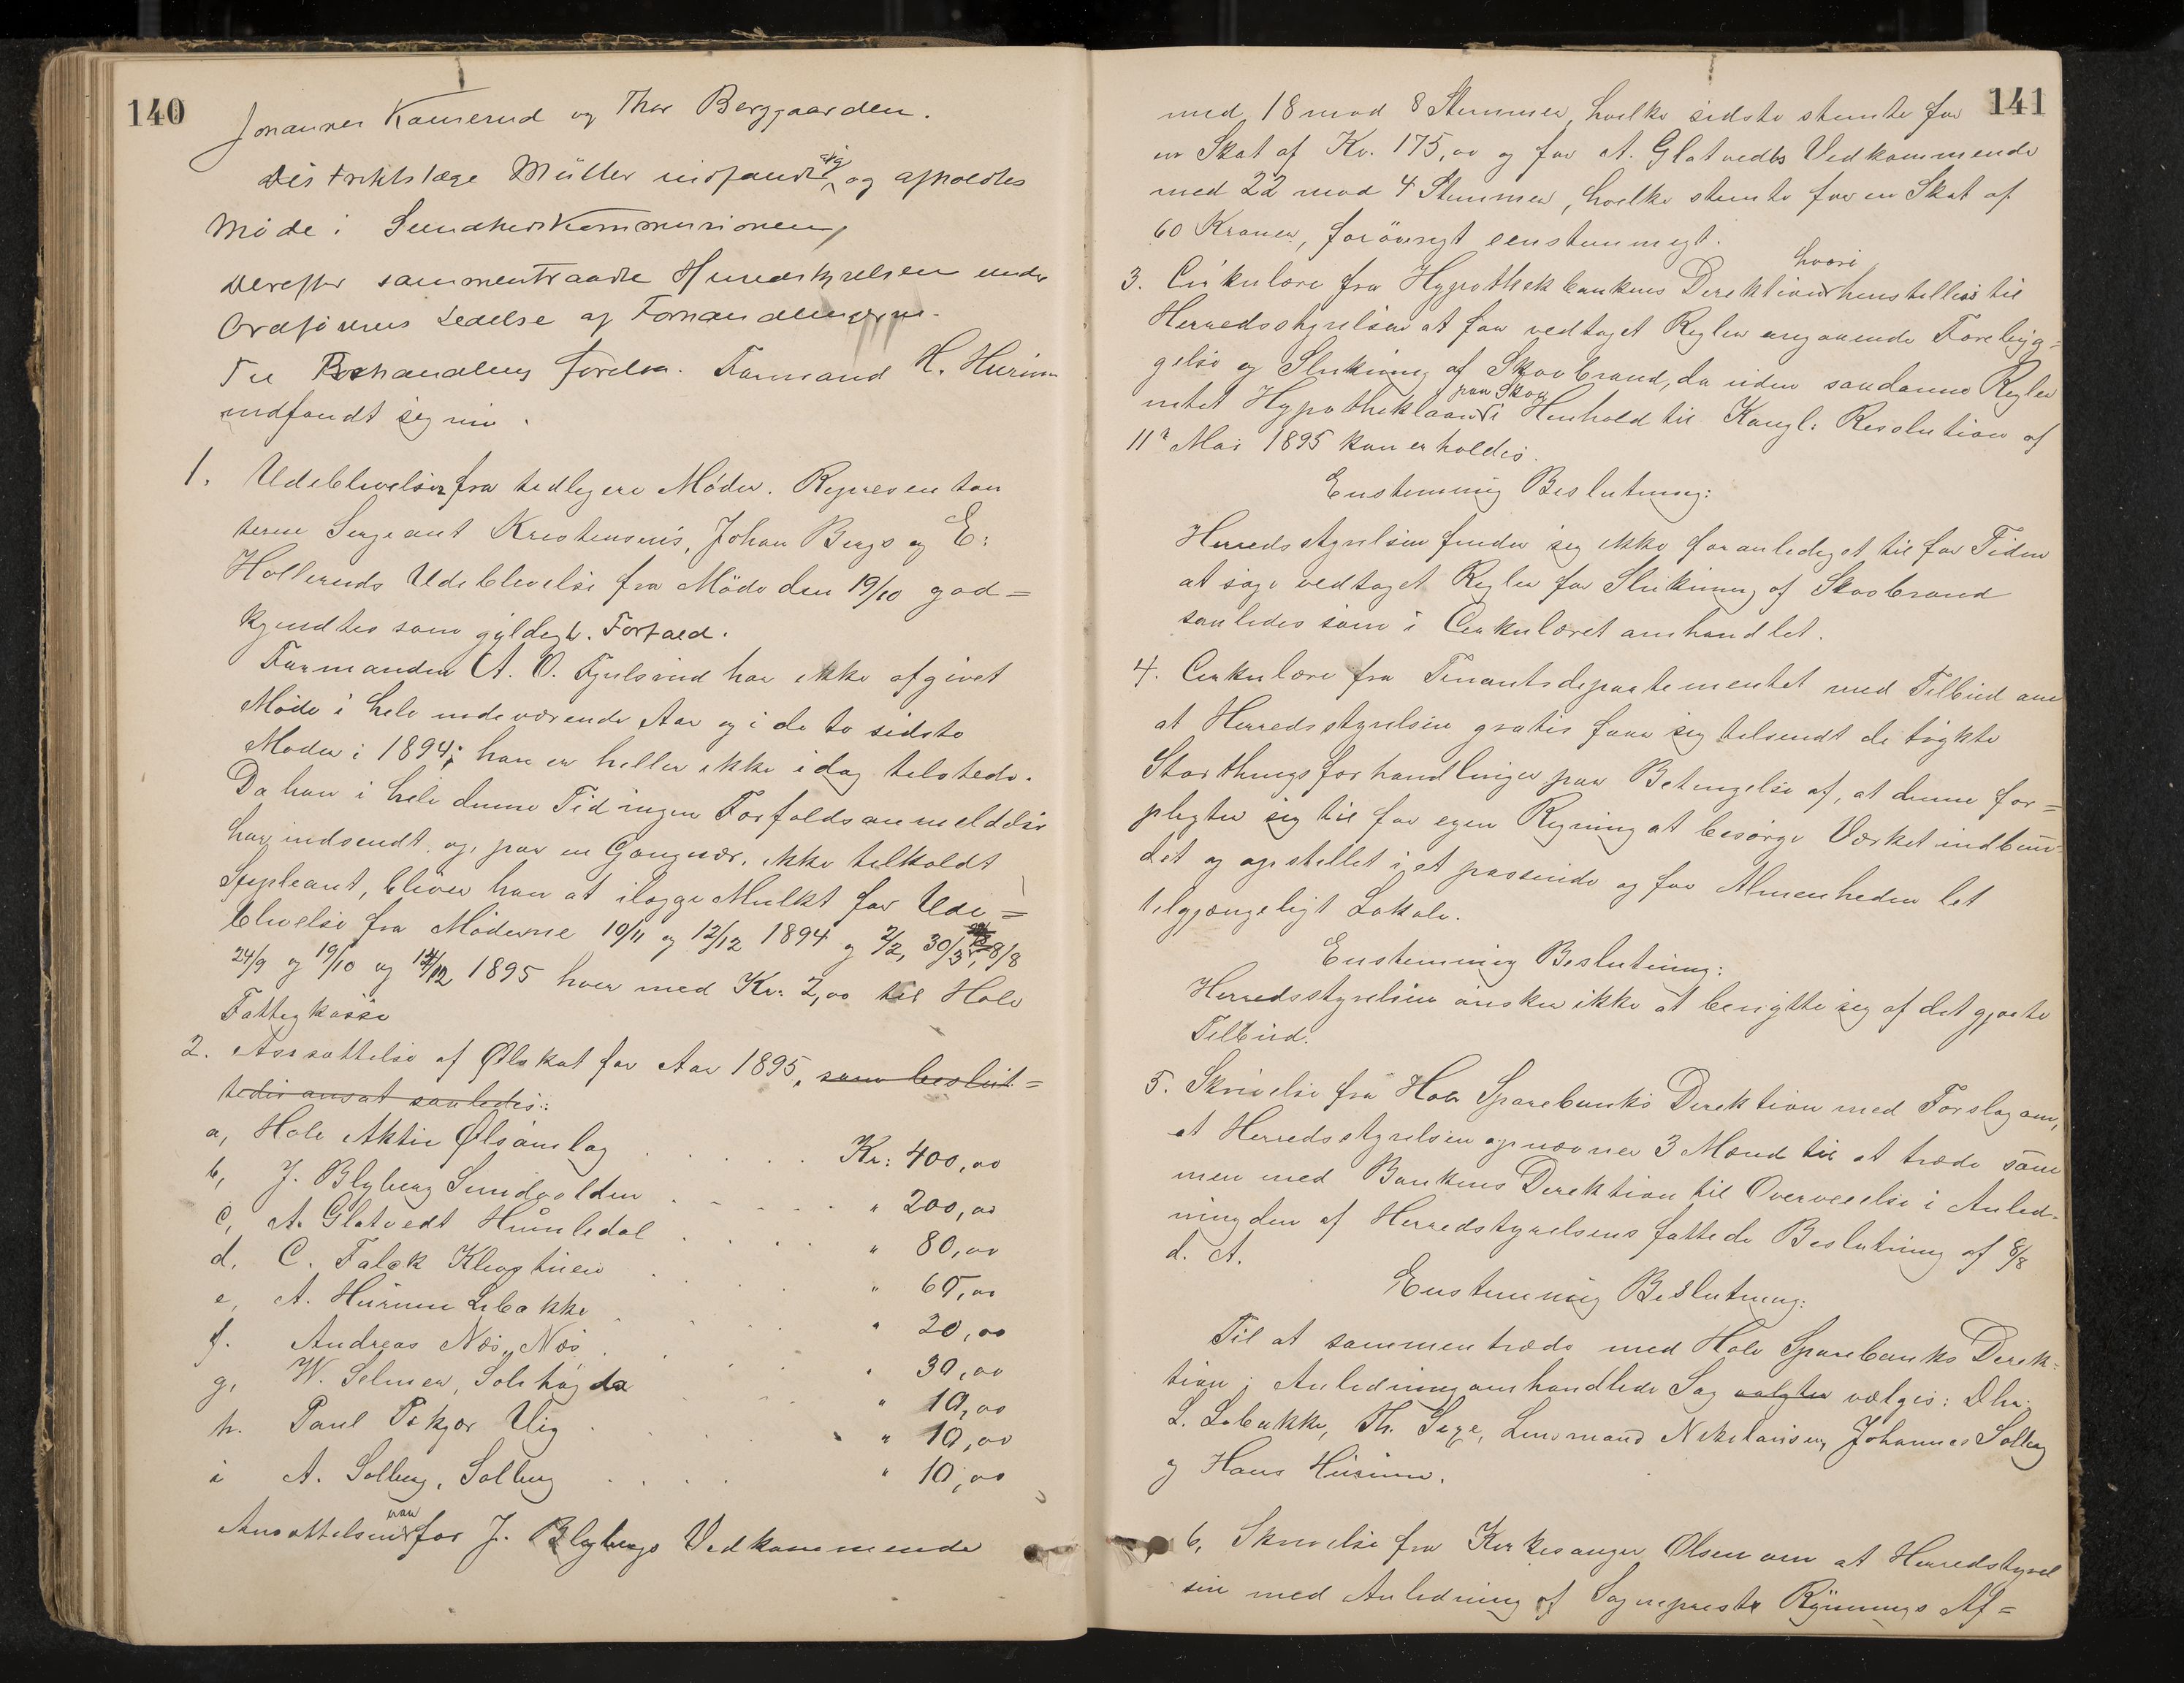 140
Johannes Kamerud og Thor Berggaarden.
Distriktslæge Müller indfandt sig og afholdtes
Møde i Sundhedskommissionen,
Derefter sammentraadte Herredstyrelsen under
Ordførerens Ledelse af Forhandlingerne.
Til Behandling forelaa. Formand H. Hurum
indfandt sig nu.
1. Udeblivelser fra tidligere Møder. Repræsentan
terne Sergeant Kristensens, Johan Bergs og E.
Holleruds Udeblivelse fra Møde den 19/10 god=
kjendtes som gyldigt Forfald.
Formanden A. O. Fjulsrud har ikke afgivet
Møde i hele indeværende Aar og i de to sidste
Møder i 1894; han er heller ikke idag tilstede.
Da han i hele denne Tid ingen Forfaldsanmeldelse
har indsendt og, paa en Gang nær, ikke tilkaldt
Supleant, bliver han at ilægge Mulkt for Ude=
blivelse fra Møderne 10/11 og 12/12 1894 og 2/2, 30/3, 8/8
24/9 og 19/10 og 14/12 1895 hver med Kr. 2,00 til Hole
Fattigkasse
2. Ansættelse af Ølskat for Aar 1895, som beslut=
tedes ansat saaledes:
a, Hole Aktie Ølsamlag . . . . . Kr: 400,00
b, J. Blyberg Sundvolden . . . . . " 200,00
c, A. Glatvedt Humledal . . . . " 80,00
d. C. Falck Klevstuen . . . " 60,00
e, A. Hurum Libakke . . . . " 20,00
f. Andreas Næs, Næs . . . . " 30,00
g, W. Selmer, Solihøgda . . . " 10,00
h. Paul Viig . . . . . " 10,00
i A. Solberg, Solberg . . . . " 10,00
Ansættelsen var for J. Blybergs Vedkommende
141
med 18 mod 8 Stemmer, hvilke sidste stemte for
en Skat af Kr. 175,00 og for A. Glatvedts Vedkommende
med 22 mod 4 Stemmer, hvilke stemte for en Skat af
60 Kroner, forøvrigt eenstemmigt.
3. Cirkulære fra Hypothekbankens Direktion hvori henstilles til
Herredsstyrelsen at faa vedtaget Regler angaaende Forebyg=
gelse og Slukning af Skovbrand, da uden saadanne Regler
intet Hypotheklaan paa Skov i Henhold til Kongl. Resolution af
11te Mai 1895 kan erholdes.
Enstemmig Beslutning:
Herredsstyrelsen finder sig ikke foranlediget til for Tiden
at søge vedtaget Regler for Slukning af Skovbrand
saaledes som i Cirkulæret omhandlet.
4. Cirkulære fra Finantsdepartementet med Tilbud om
at Herredsstyrelsen gratis faar sig tilsendt de trykte
Storthingsforhandlinger paa Betingelse af, at denne for=
pligter sig til for egen Regning at besørge Værket indbun=
det og opstillet i et passende og for Almenheden let
tilgjængeligt Lokale.
Enstemmig Beslutning:
Herredsstyrelsen ønsker ikke at benytte sig af det gjorte
Tilbud.
5. Skrivelse fra Hole Sparebanks Direktion med Forslag om,
at Herredsstyrelsen opnævner 3 Mænd til at træde sam
men med Bankens Direktion til Overveielse i Anled=
ning den af Herredstyrelsens fattede Beslutning af 8/8
d. A.
Enstemmig Beslutning:
Til at sammentræde med Hole Sparebanks Direk=
tion i Anledning omhandlede Sag valgtes vælges: Dhr.
L. Libakke, Th. Lensmand Nikolaisen, Johannes Solberg
og Hans Hurum.
6, Skrivelse fra Kirkesanger Olsen om at Herredstyrel
sen med Anledning af Sognepræst Rynnings Af=